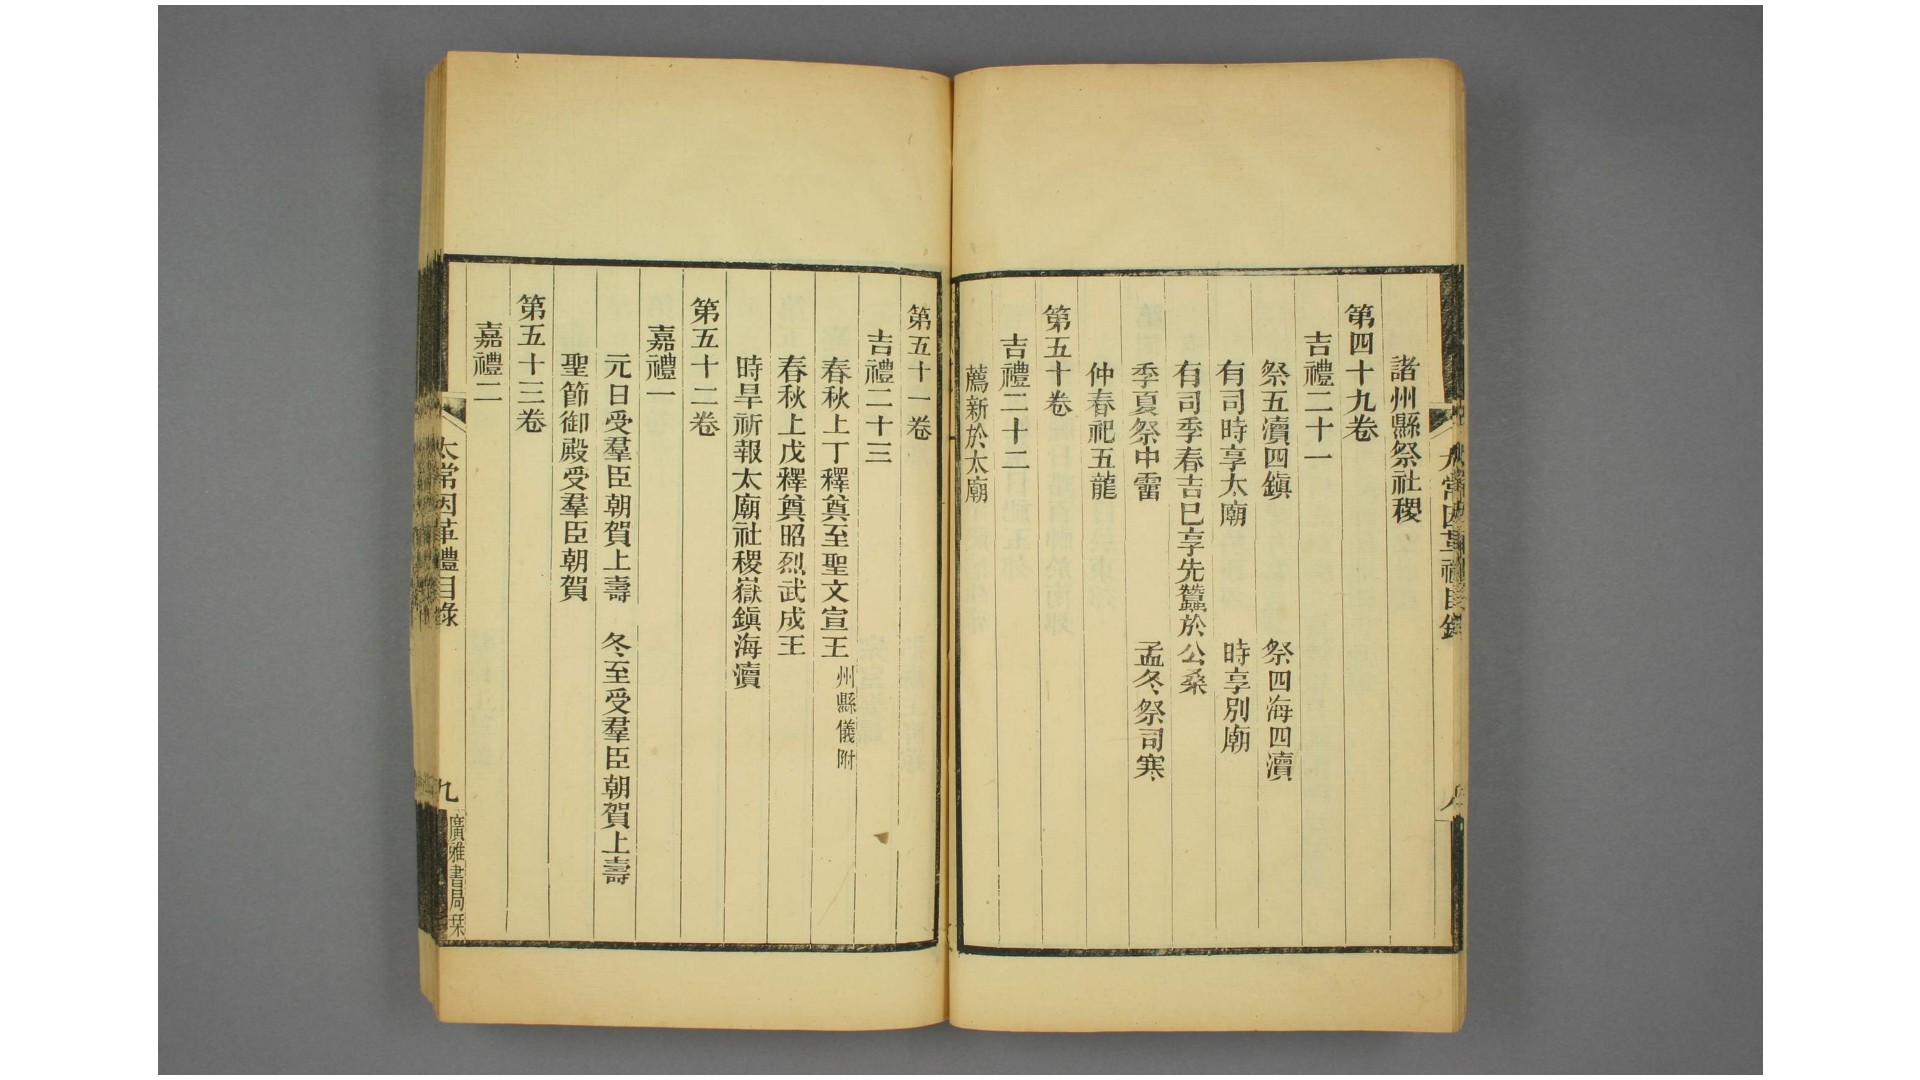 諸州縣祭社稷
第四十九卷
吉禮二十一
祭五瀆四鎮　祭四海四瀆
有司時享太廟　時享別廟
有司季春吉巳享先蠶於公桑
季夏祭中霤　孟冬祭司寒
仲春祀五龍
第五十卷
吉禮二十二
薦新於太廟
第五十一卷
吉禮二十三
春秋上丁釋奠至聖文宣王州縣儀附
春秋上戊釋奠昭烈武成王
時旱祈報太廟社稷嶽鎮海瀆
第五十二卷
嘉禮一
元日受羣臣朝賀上壽　冬至受羣臣朝賀上壽
聖節御殿受羣臣朝賀
第五十三卷
嘉禮二
太常因革禮目錄
九
廣雅書局栞